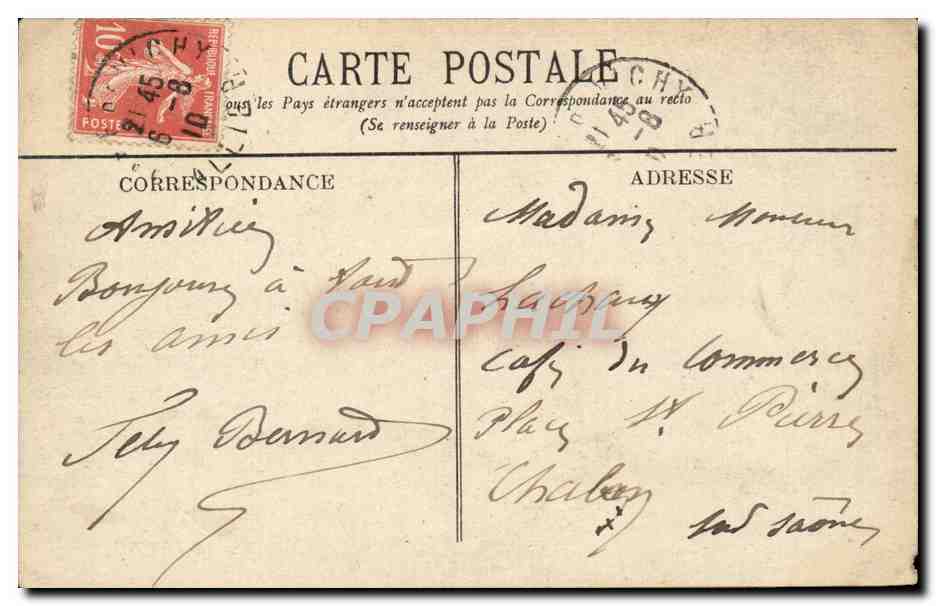 CARTE POSTALE
Tous les Pays étrangers n'acceptent pas la Correspondance au recto
(Se renseigner à la Poste)
10
REPUBLIQUE FRANÇAISE
POSTES
VICHY
21 45
6 -8
10
VICHY
21 45
-8
CORRESPONDANCE
Amitiés
Bonjours à tout
les amis
Bernard
ADRESSE
Madame Monsieur
Café du Commerce
Place St Pierre
Chalon
sur saône
CPAPHIL